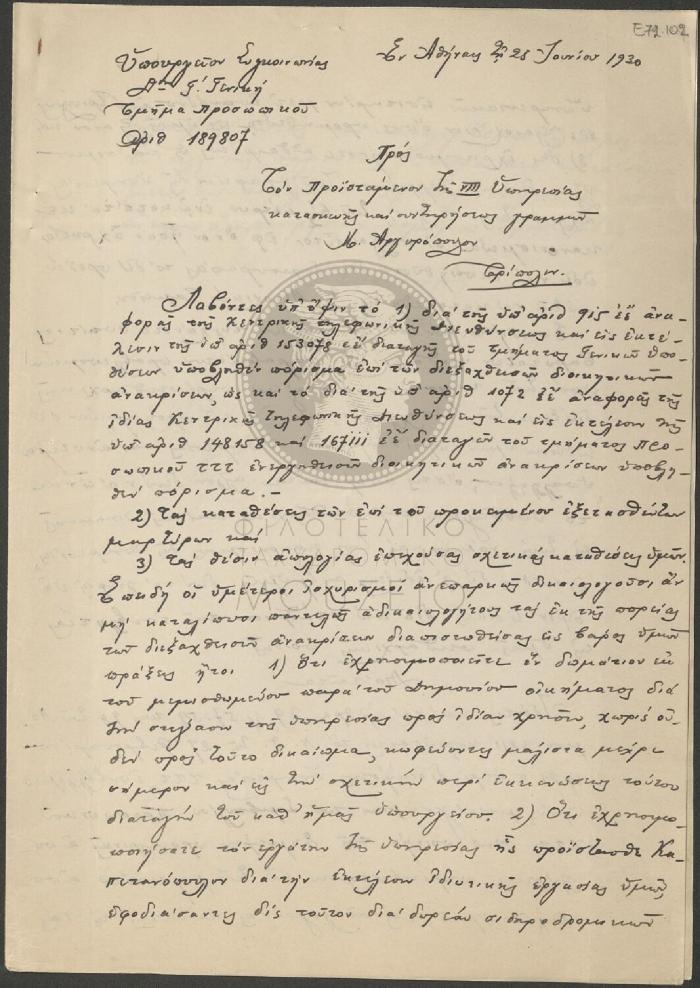 Ε72.102
Ἐν Ἀθήναις τῇ 25 Ἰουνίου 1920
Ὑπουργεῖον Συγκοινωνίας
Δ/σις Γ΄. Γενική
Τμῆμα Προσωπικοῦ
Ἀριθ 189807
Πρός
Τὸν Προϊστάμενον τῆς VIII Ὑπηρεσίας
κατασκευῆς καὶ συντηρήσεως γραμμῶν
Μ. Ἀργυρόπουλον
Τρίπολιν.
Λαβόντες ὑπ' ὄψιν τὸ 1) διὰ τῆς ὑπ' ἀριθ 915 ἐ.ἔ. ἀνα-
φορᾶς τῆς Κεντρικῆς τηλεφωνικῆς Διευθύνσεως καὶ εἰς ἐκτέ-
λεσιν τῆς ὑπ' ἀριθ 153078 ἐ.ἔ. διαταγῆς τοῦ τμήματος Γενικῶν Ὑπο-
θέσεων ὑποβληθὲν πόρισμα ἐπὶ τῶν διεξαχθεισῶν διοικητικῶν
ἀνακρίσεων, ὡς καὶ τὸ διὰ τῆς ὑπ' ἀριθ 1072 ἐ.ἔ. ἀναφορᾶς τῆς
ἰδίας Κεντρικῆς Τηλεφωνικῆς Διευθύνσεως καὶ εἰς ἐκτέλεσιν τῆς
ὑπ' ἀριθ 148158 καὶ 167111 ἐ.ἔ. διαταγῶν τοῦ τμήματος Προ-
σωπικοῦ ΤΤΤ ἐνεργηθεισῶν διοικητικῶν ἀνακρίσεων ὑποβλη-
θὲν πόρισμα.-
2) Τὰς καταθέσεις τῶν ἐπὶ τοῦ προκειμένου ἐξετασθέντων
μαρτύρων καὶ
3) Τὰς θέσιν ἀπολογίας ἐπεχούσας σχετικὰς καταθέσεις ὑμῶν.
Ἐπειδὴ οἱ ὑμέτεροι ἰσχυρισμοὶ ἀνεπαρκῶς δικαιολογοῦσι ἂν
μὴ καταλίπωσι παντελῶς ἀδικαιολογήτους τὰς ἐκ τῆς πορείας
τῶν διεξαχθεισῶν ἀνακρίσεων διαπιστωθείσας εἰς βάρος ὑμῶν
πράξεις ἤτοι 1) Ὅτι ἐχρησιμοποιεῖτε ἓν δωμάτιον ἐκ
τοῦ μεμισθωμένου παρὰ τοῦ Δημοσίου οἰκήματος διὰ
τὴν στέγασιν τῆς ὑπηρεσίας πρὸς ἰδίαν χρῆσιν, χωρὶς οὐ-
δὲν πρὸς τοῦτο δικαίωμα, κωφεύοντες μάλιστα μέχρι
σήμερον καὶ εἰς τὴν σχετικὴν περὶ ἐκκενώσεως τούτου
διαταγὴν τοῦ καθ' ἡμᾶς Ὑπουργείου. 2) Ὅτι ἐχρησιμο-
ποιήσατε τὸν ἐργάτην τῆς ὑπηρεσίας ἧς προΐστασθε Κα-
πετανόπουλον διὰ τὴν ἐκτέλεσιν ἰδιωτικῆς ἐργασίας ὑμῶν,
ἐφοδιάσαντες δὶς τοῦτον διὰ δωρεὰν σιδηροδρομικῶν
ΦΙΛΟΤΕΛΙΚΟ
ΜΟΥΣΕΙΟ